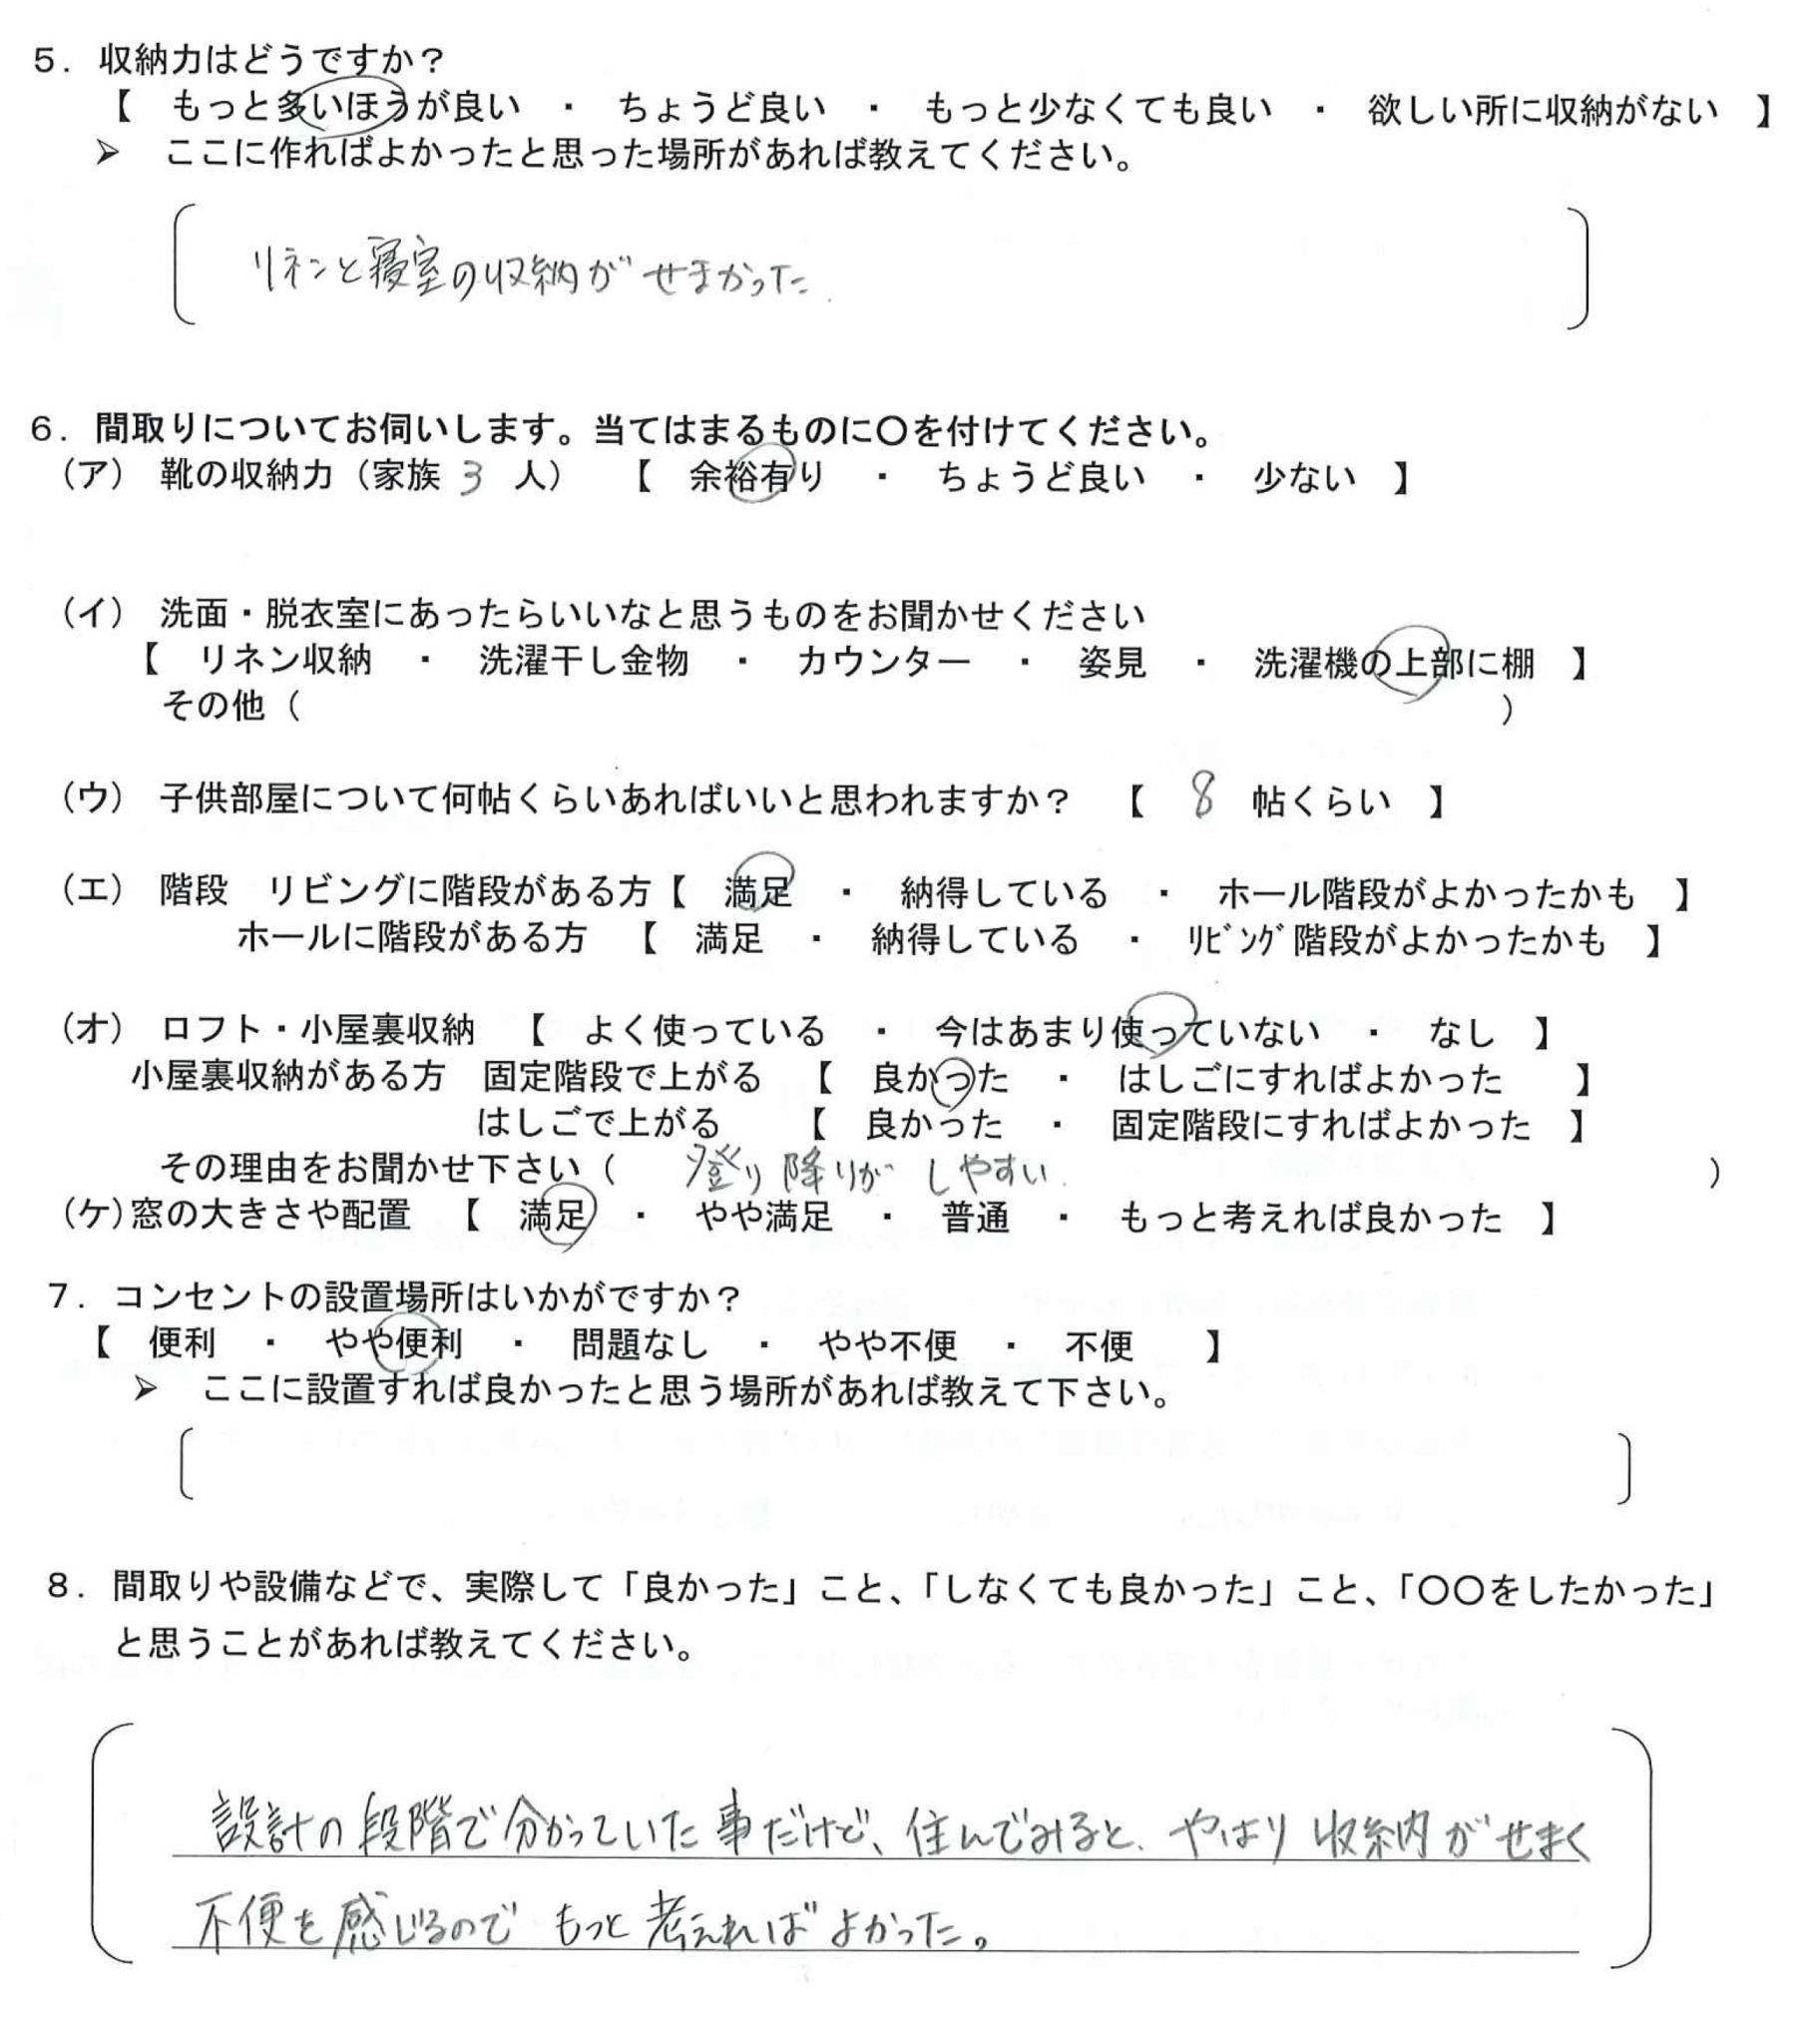 ５．収納力はどうですか？
【　もっと多いほうが良い　・　ちょうど良い　・　もっと少なくても良い　・　欲しい所に収納がない　】
➢　ここに作ればよかったと思った場所があれば教えてください。
リネンと寝室の収納がせまかった.
６．間取りについてお伺いします。当てはまるものに〇を付けてください。
（ア）　靴の収納力（家族 3 人）　【　余裕有り　・　ちょうど良い　・　少ない　】
（イ）　洗面・脱衣室にあったらいいなと思うものをお聞かせください
【　リネン収納　・　洗濯干し金物　・　カウンター　・　姿見　・　洗濯機の上部に棚　】
その他（　　　）
（ウ）　子供部屋について何帖くらいあればいいと思われますか？　【　8　帖くらい　】
（エ）　階段　リビングに階段がある方【　満足　・　納得している　・　ホール階段がよかったかも　】
ホールに階段がある方　【　満足　・　納得している　・　ﾘﾋﾞﾝｸﾞ階段がよかったかも　】
（オ）　ロフト・小屋裏収納　【　よく使っている　・　今はあまり使っていない　・　なし　】
小屋裏収納がある方　固定階段で上がる　【　良かった　・　はしごにすればよかった　】
はしごで上がる　【　良かった　・　固定階段にすればよかった　】
その理由をお聞かせ下さい（　登り降りが しやすい.　）
（ケ）窓の大きさや配置　【　満足　・　やや満足　・　普通　・　もっと考えれば良かった　】
７．コンセントの設置場所はいかがですか？
【　便利　・　やや便利　・　問題なし　・　やや不便　・　不便　】
➢　ここに設置すれば良かったと思う場所があれば教えて下さい。
８．間取りや設備などで、実際して「良かった」こと、「しなくても良かった」こと、「〇〇をしたかった」
と思うことがあれば教えてください。
設計の段階で分かっていた事だけど、住んでみると、やはり収納がせまく
不便を感じるので もっと考えればよかった。